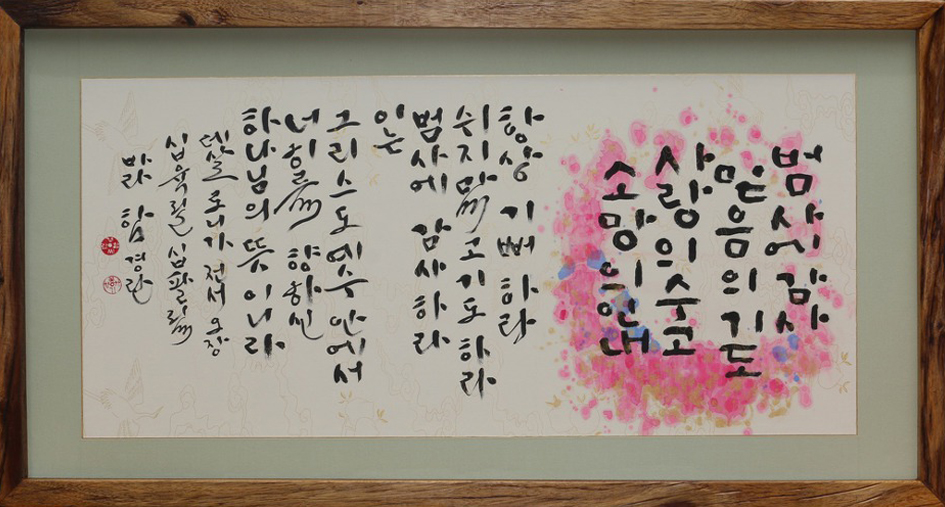 범사에감사
믿음의기도
사랑의수고
소망의인내
항상 기뻐하라
쉬지말고기도하라
범사에 감사하라
이는
그리스도예수안에서
너희를 향하신
하나님의 뜻이니라
데살로니가 전서 오장
십육절 십팔절
바라 함 경란